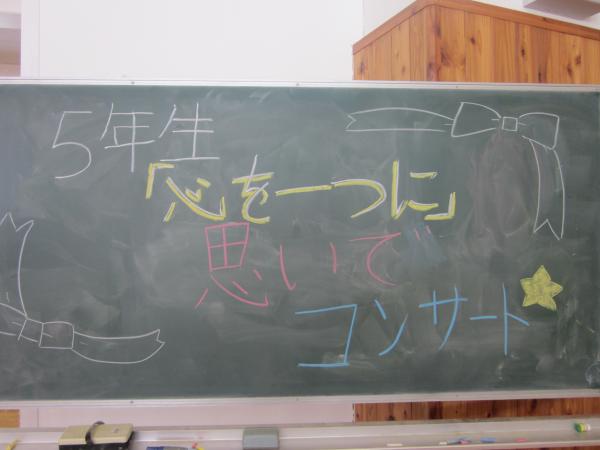 5年生
「心を一つに」
思いで
コンサート